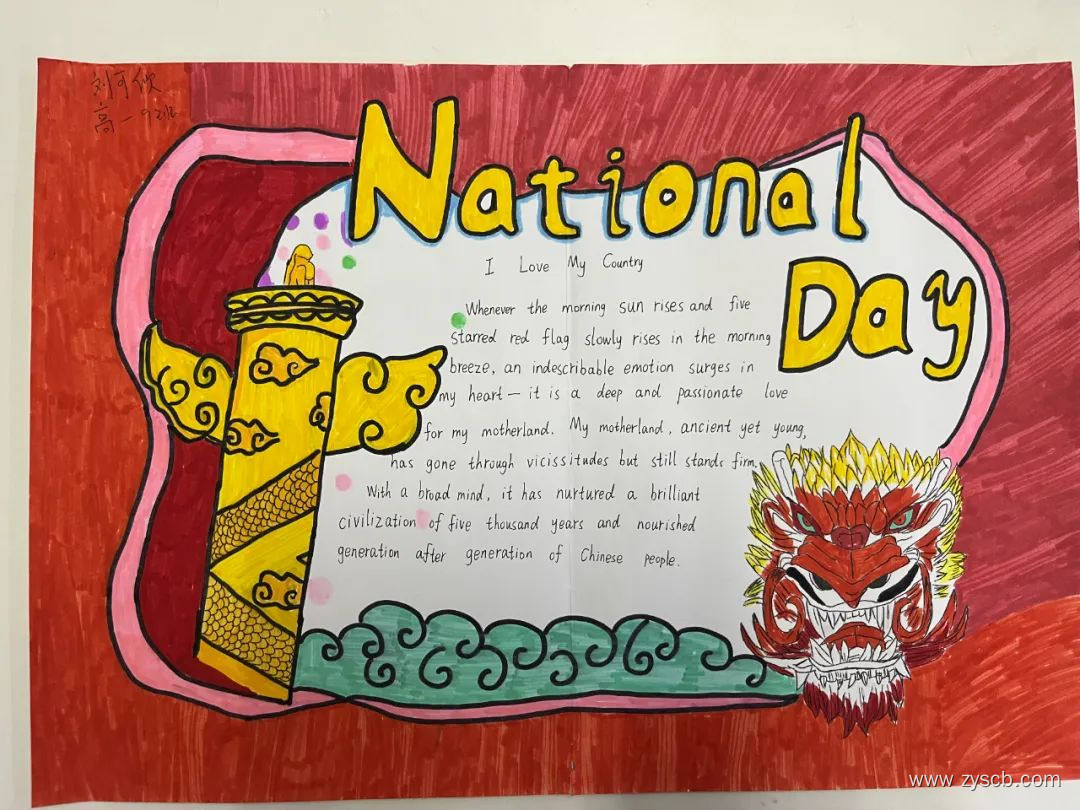 刘可欣
高一9班
National
Day
I Love My Country
Whenever the morning sun rises and five
starred red flag slowly rises in the morning
breeze, an indescribable emotion surges in
my heart — it is a deep and passionate love
for my motherland. My motherland, ancient yet young,
has gone through vicissitudes but still stands firm.
With a broad mind, it has nurtured a brilliant
civilization of five thousand years and nourished
generation after generation of Chinese people.
www.zyscb.com